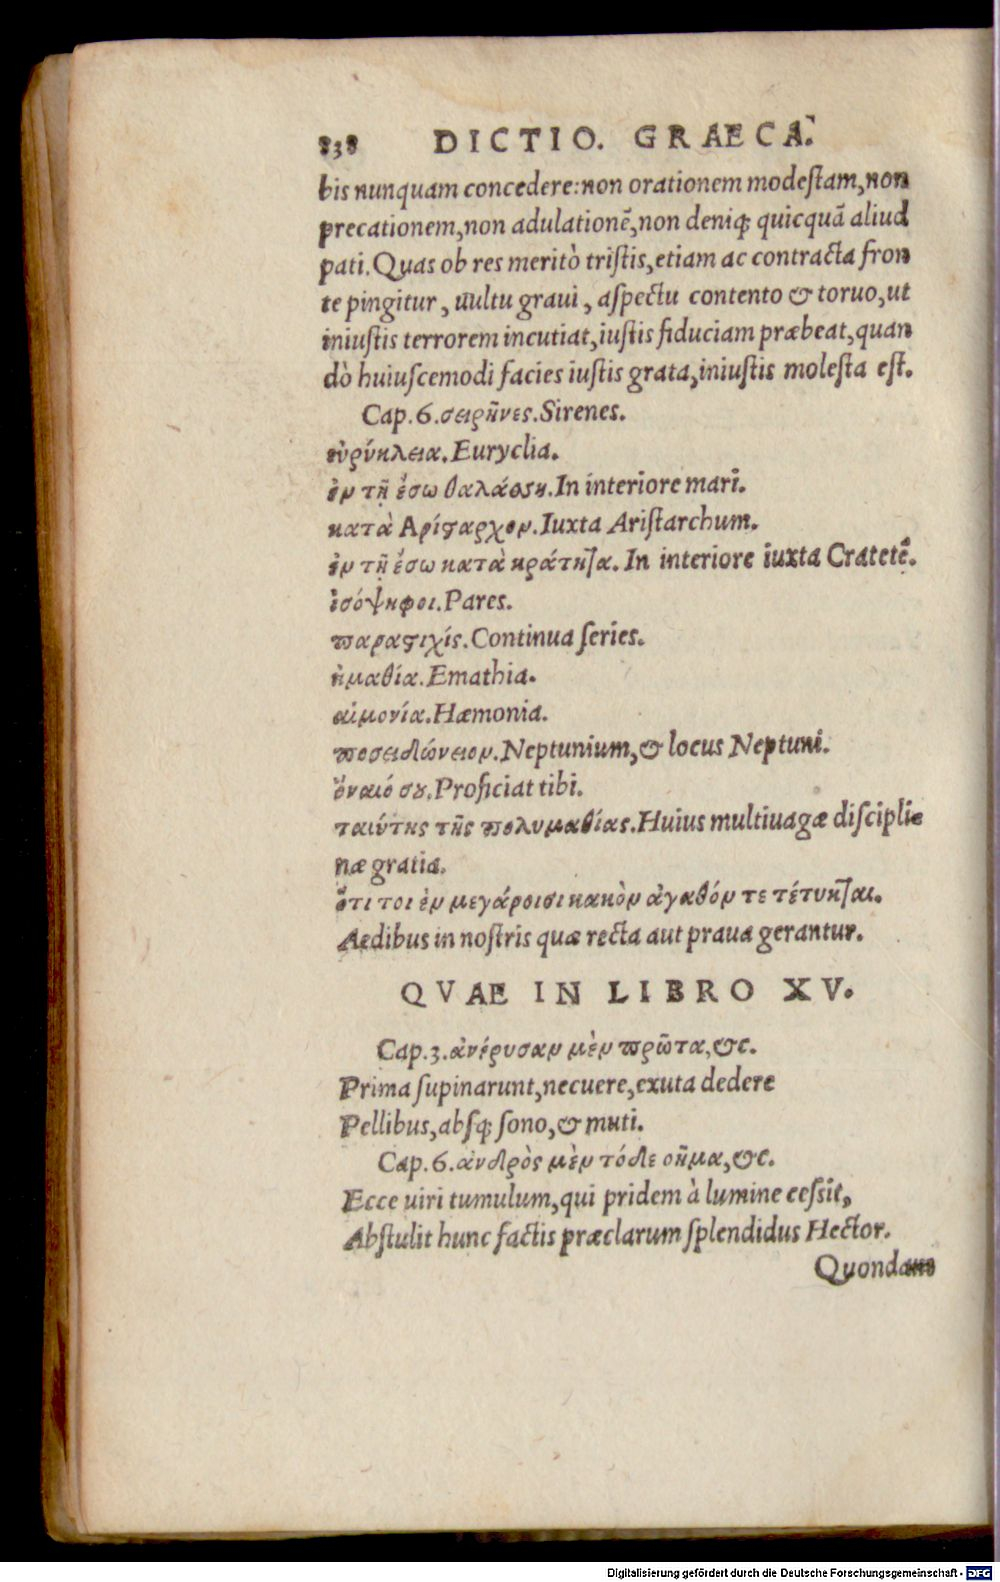 838 DICTIO. GRAECA.
bis nunquam concedere: non orationem modestam, non
precationem, non adulationē, non deniq; quicquā aliud
pati. Quas ob res meritò tristis, etiam ac contracta fron
te pingitur, uultu graui, aspectu contento & toruo, ut
iniustis terrorem incutiat, iustis fiduciam præbeat, quan
dò huiuscemodi facies iustis grata, iniustis molesta est.
Cap. 6. σειρῆνες. Sirenes.
εὐρύκλεια. Euryclia.
ἐν τῇ ἔσω θαλάσσῃ. In interiore mari.
κατὰ Αρίσταρχον. Iuxta Aristarchum.
ἐν τῇ ἔσω κατὰ κράτητα. In interiore iuxta Cratetē.
ἰσόψηφοι. Pares.
παραστιχίς. Continua series.
ἠμαθία. Emathia.
αἱμονία. Hæmonia.
ποσειδώνειον. Neptunium, & locus Neptuni.
ὄναιό σου. Proficiat tibi.
ταύτης τῆς πολυμαθίας. Huius multiuagæ discipli
næ gratia.
ὅτι τοι ἐν μεγάροισι κακὸν ἀγαθόν τε τέτυκται.
Aedibus in nostris quæ recta aut praua gerantur.
QVAE IN LIBRO XV.
Cap. 3. ἀνέρυσαν μὲν πρῶτα, &c.
Prima supinarunt, necuere, exuta dedere
Pellibus, absq; sono, & muti.
Cap. 6. ἀνδρὸς μὲν τόδε σῆμα, &c.
Ecce uiri tumulum, qui pridem à lumine cessit,
Abstulit hunc factis præclarum splendidus Hector.
Quondam
Digitalisierung gefördert durch die Deutsche Forschungsgemeinschaft - DFG